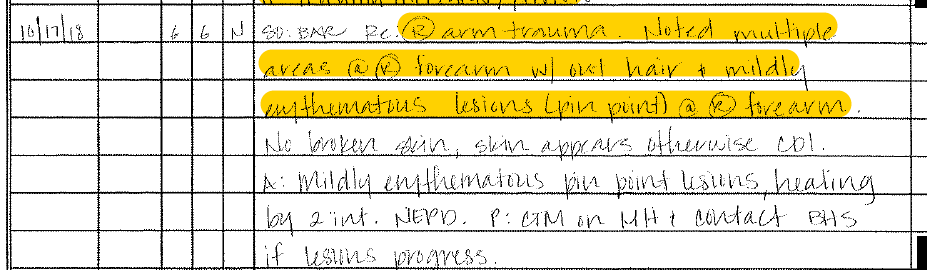 10/17/18 6 6 N SO: BAR Re: Ⓡ arm trauma. Noted multiple
areas @ Ⓡ forearm w/ out hair + mildly
erythematous lesions (pin point) @ Ⓡ forearm.
No broken skin, skin appears otherwise CDI.
A: Mildly erythematous pin point lesions, healing
by 2 int. NEPD. P: CTM on MH + contact BHS
if lesions progress.